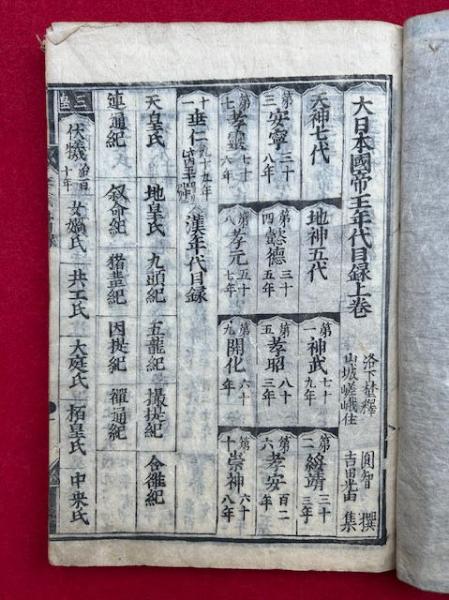 大日本國帝王年代目録上巻
洛下埜釋 圓智 撰
山城嵯峨住 吉田光由 集
天神七代
地神五代
第一 神武 七十九年
第二 綏靖 三十三年
第三 安寧 三十八年
第四 懿德 三十五年
第五 孝昭 八十三年
第六 孝安 百二年
第七 孝靈 七十六年
第八 孝元 五十七年
第九 開化 六十年
第十 崇神 六十八年
十一 垂仁 九十九年
漢年代目録
天皇氏 地皇氏 九頭紀 五龍紀 攝提紀 合雒紀
連通紀 叙命紀 因提紀 禪通紀
三皇
伏犧 十年 女媧氏 共工氏 大庭氏 栢皇氏 中央氏